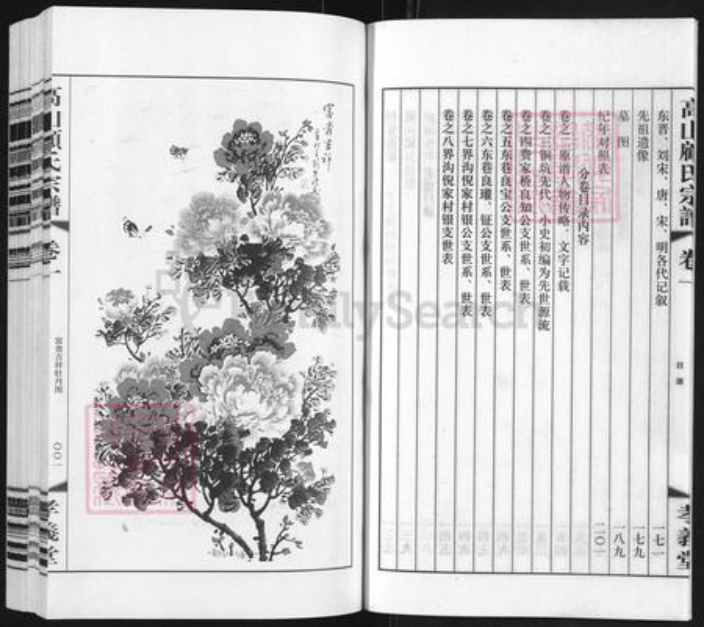 高山顾氏宗谱
卷一
目录
孝义堂
东晋、刘宋、唐、宋、明各代记叙 一七一
先祖遗像 一七九
墓图 一八九
纪年对照表 二〇一
分卷目录内容
卷之二原谱人物传略、文字记载
卷之三铜坑先代、小史初编为先世源流
卷之四费家桥良知公支世系、世表
卷之五东巷良宝公支世系、世表
卷之六东巷良璀、钲公支世系、世表
卷之七界沟倪家村银公支世系、世表
卷之八界沟倪家村银支世表
富贵吉祥
高山顾氏宗谱
卷一
富贵吉祥牡丹图
〇〇一
孝义堂
FamilySearch